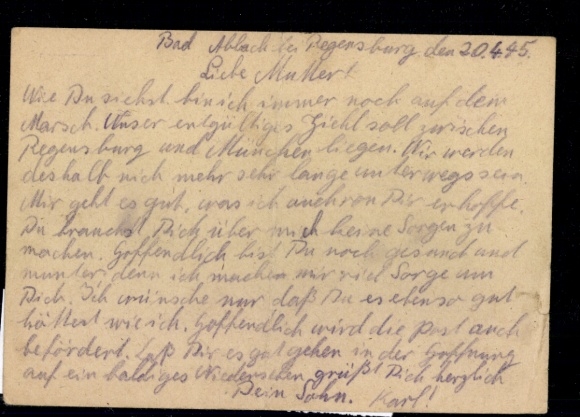 Bad Abbach bei Regensburg den 20.4.45.
Liebe Mutter!
Wie Du siehst bin ich immer noch auf dem
Marsch. Unser entgültiges Ziehl soll zwischen
Regensburg und München liegen. Wir werden
deshalb nich mehr sehr lange unterwegs sein
Mir geht es gut, was ich auch von Dir erhoffe.
Du brauchst Dich über mich keine Sorgen zu
machen. Hoffendlich bist Du noch gesund und
munter, denn ich machen mir viel Sorge um
Dich. Ich wünsche nur daß Du es ebenso gut
hättest wie ich. Hoffendlich wird die Post auch
befördert. Laß Dir es gut gehen in der Hoffnung
auf ein baldiges Wiedersehen grüßt Dich herzlich
Dein Sohn. Karl!